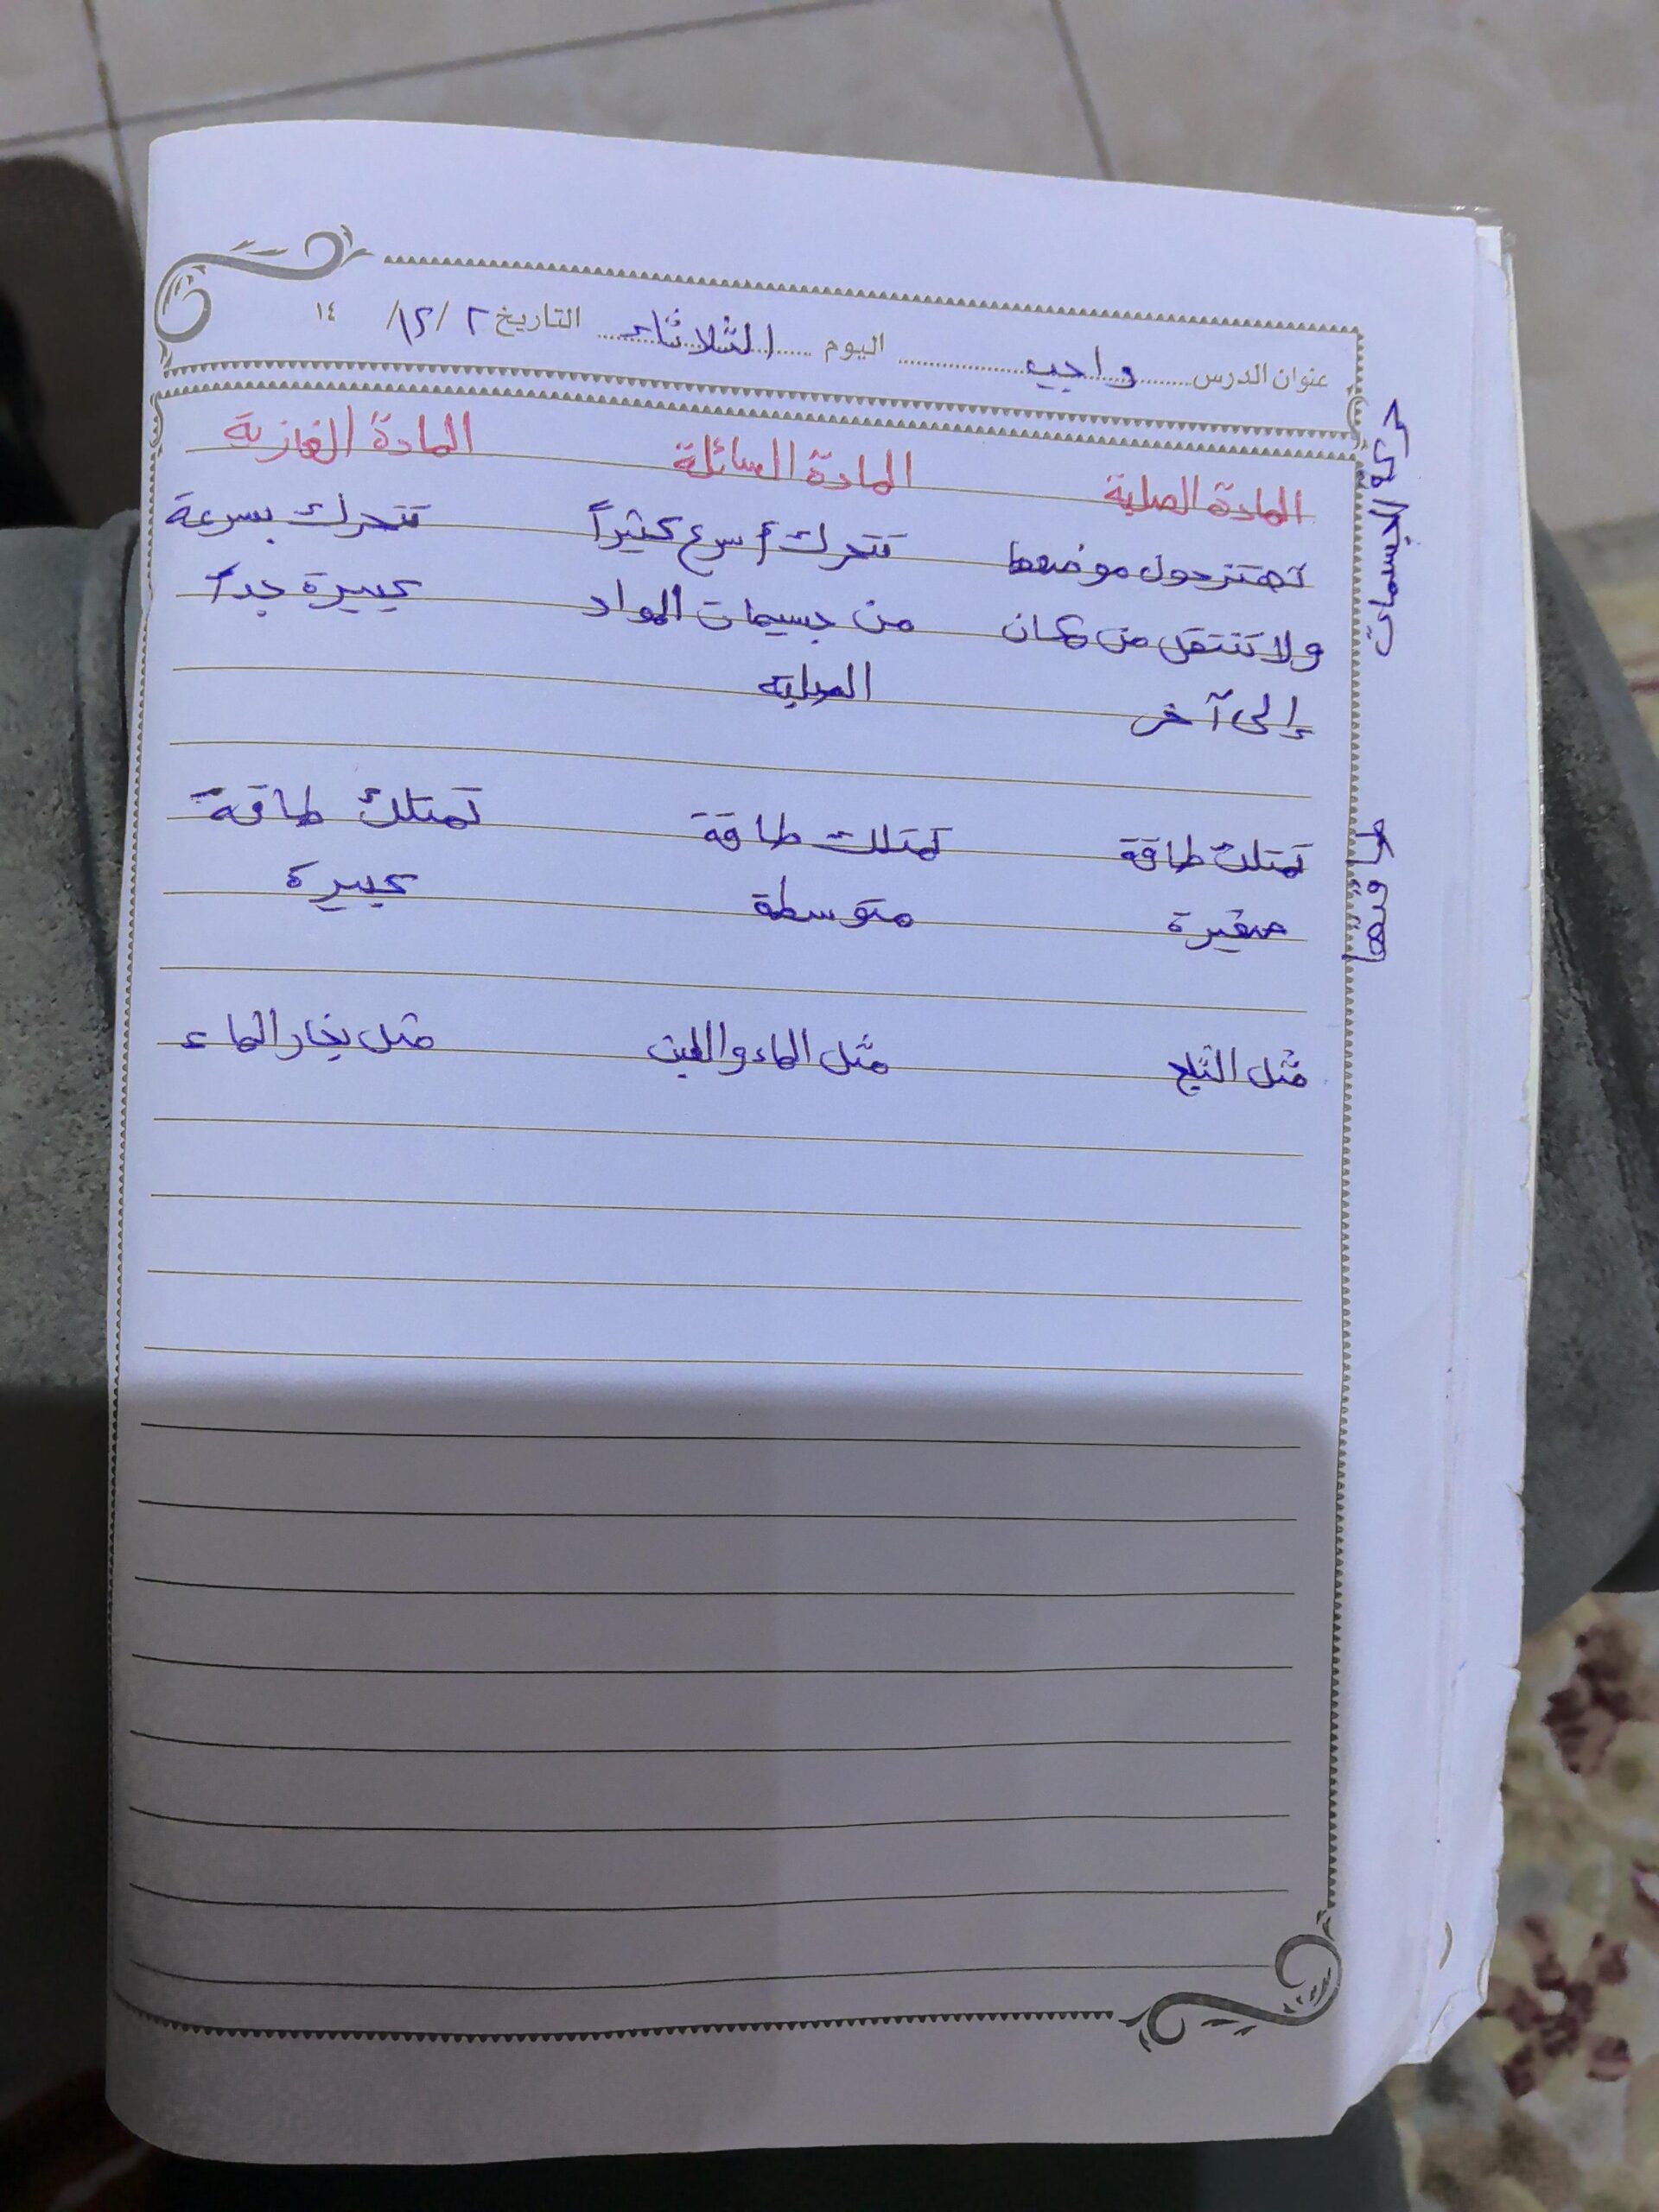 عنوان الدرس واجب اليوم الثلاثاء التاريخ ٢ / ١٢ / ١٤
المادة الصلبة المادة السائلة المادة الغازية
حركة الجسيمات
تهتز حول موضعها تتحرك أسرع كثيراً تتحرك بسرعة
ولا تنتقل من مكان من جسيمات المواد كبيرة جداً
إلى آخر الصلبة
طاقتها
تمتلك طاقة تمتلك طاقة تمتلك طاقة
صغيرة متوسطة كبيرة
مثل الثلج مثل الماء واللبن مثل بخار الماء